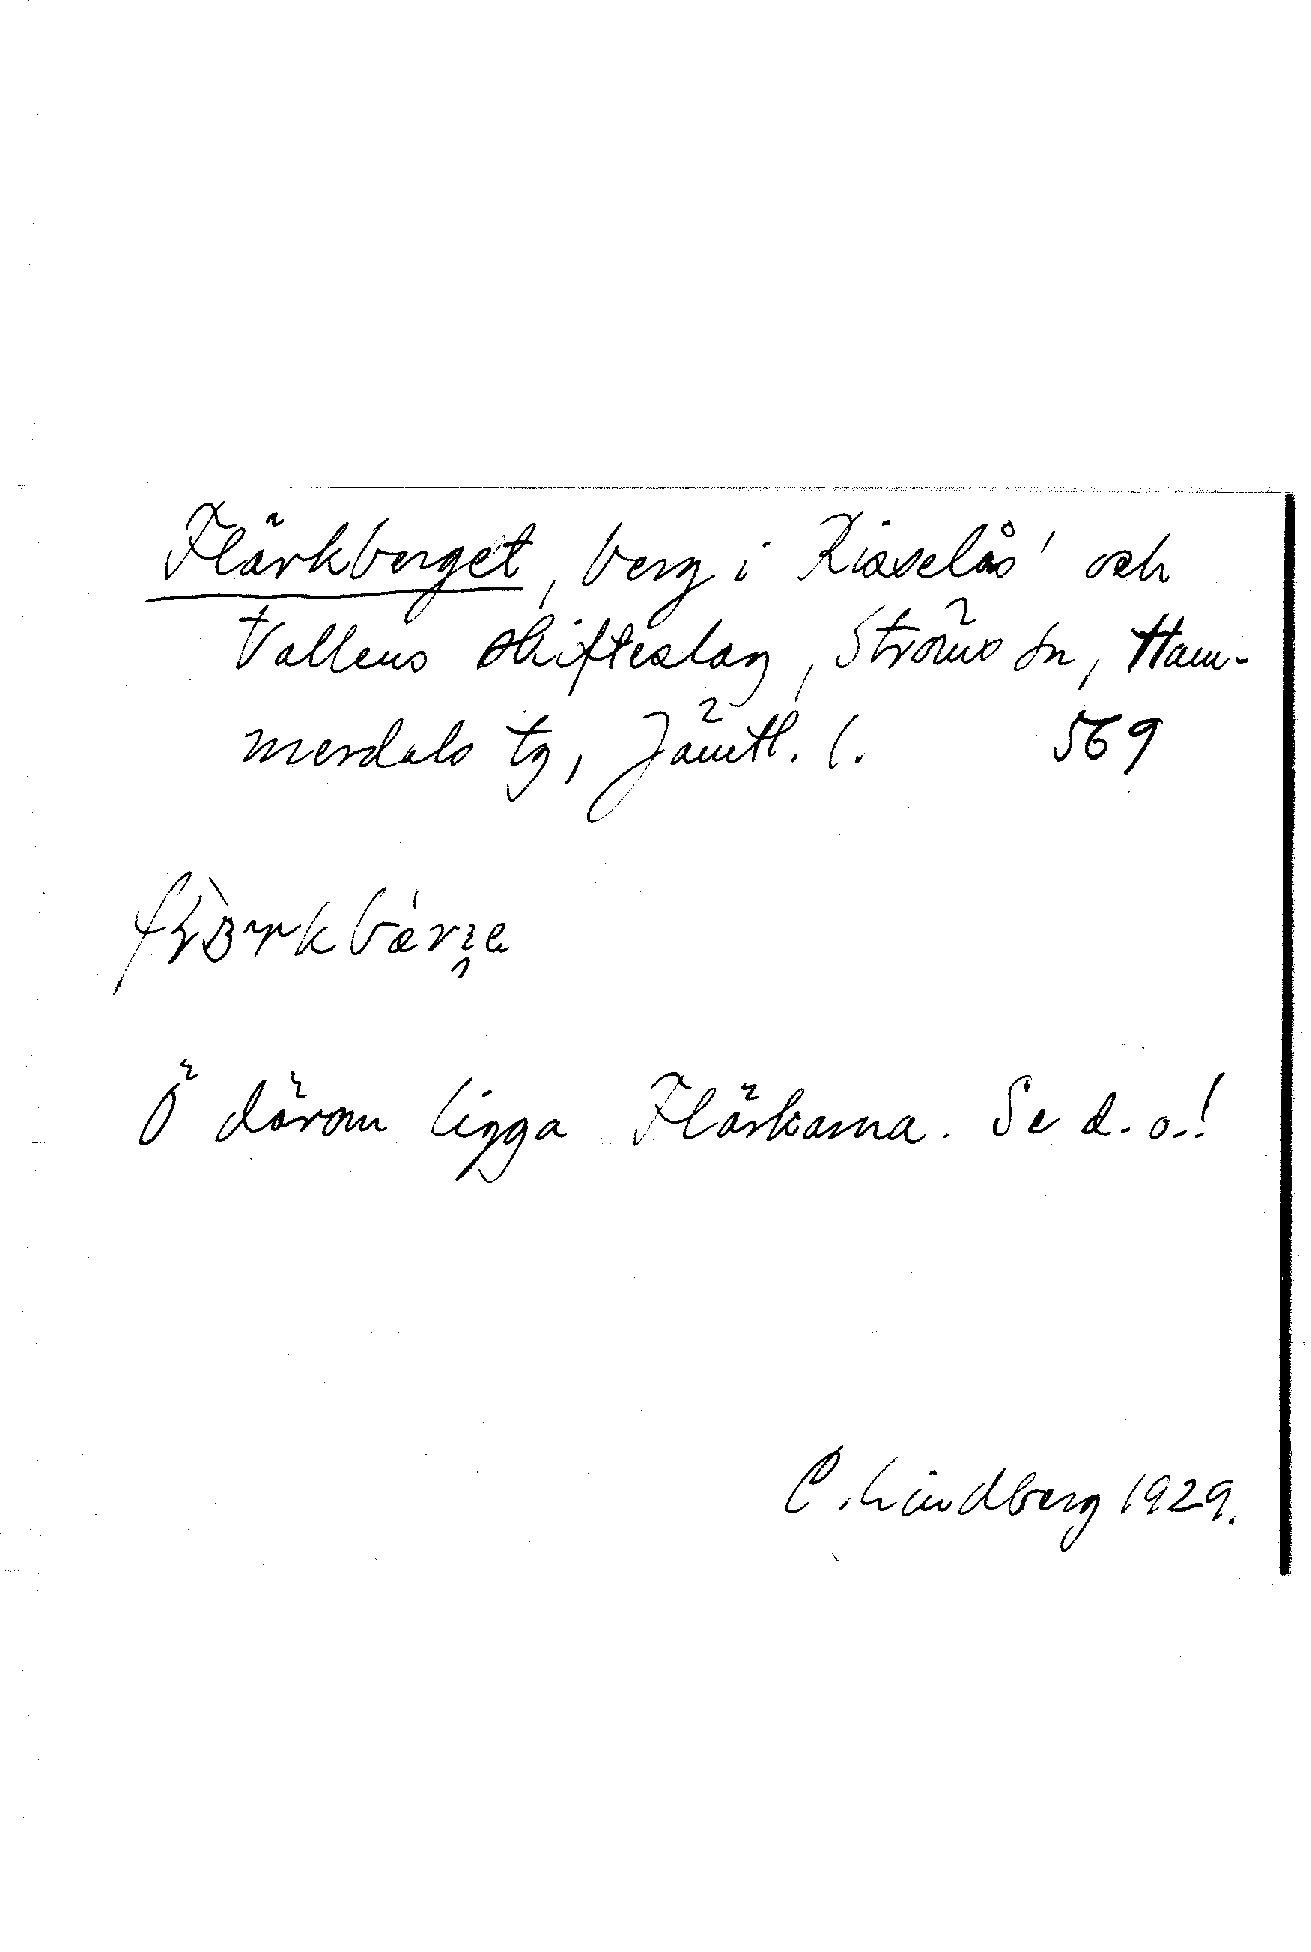 Flärkberget, berg i Risselås' och
Vallens skifteslag, Ströms sn, Ham-
merdals tg, Jämtl. l. 569
Ö därom ligga Flärkarna. Se d. o.!
C. Lindberg 1929.